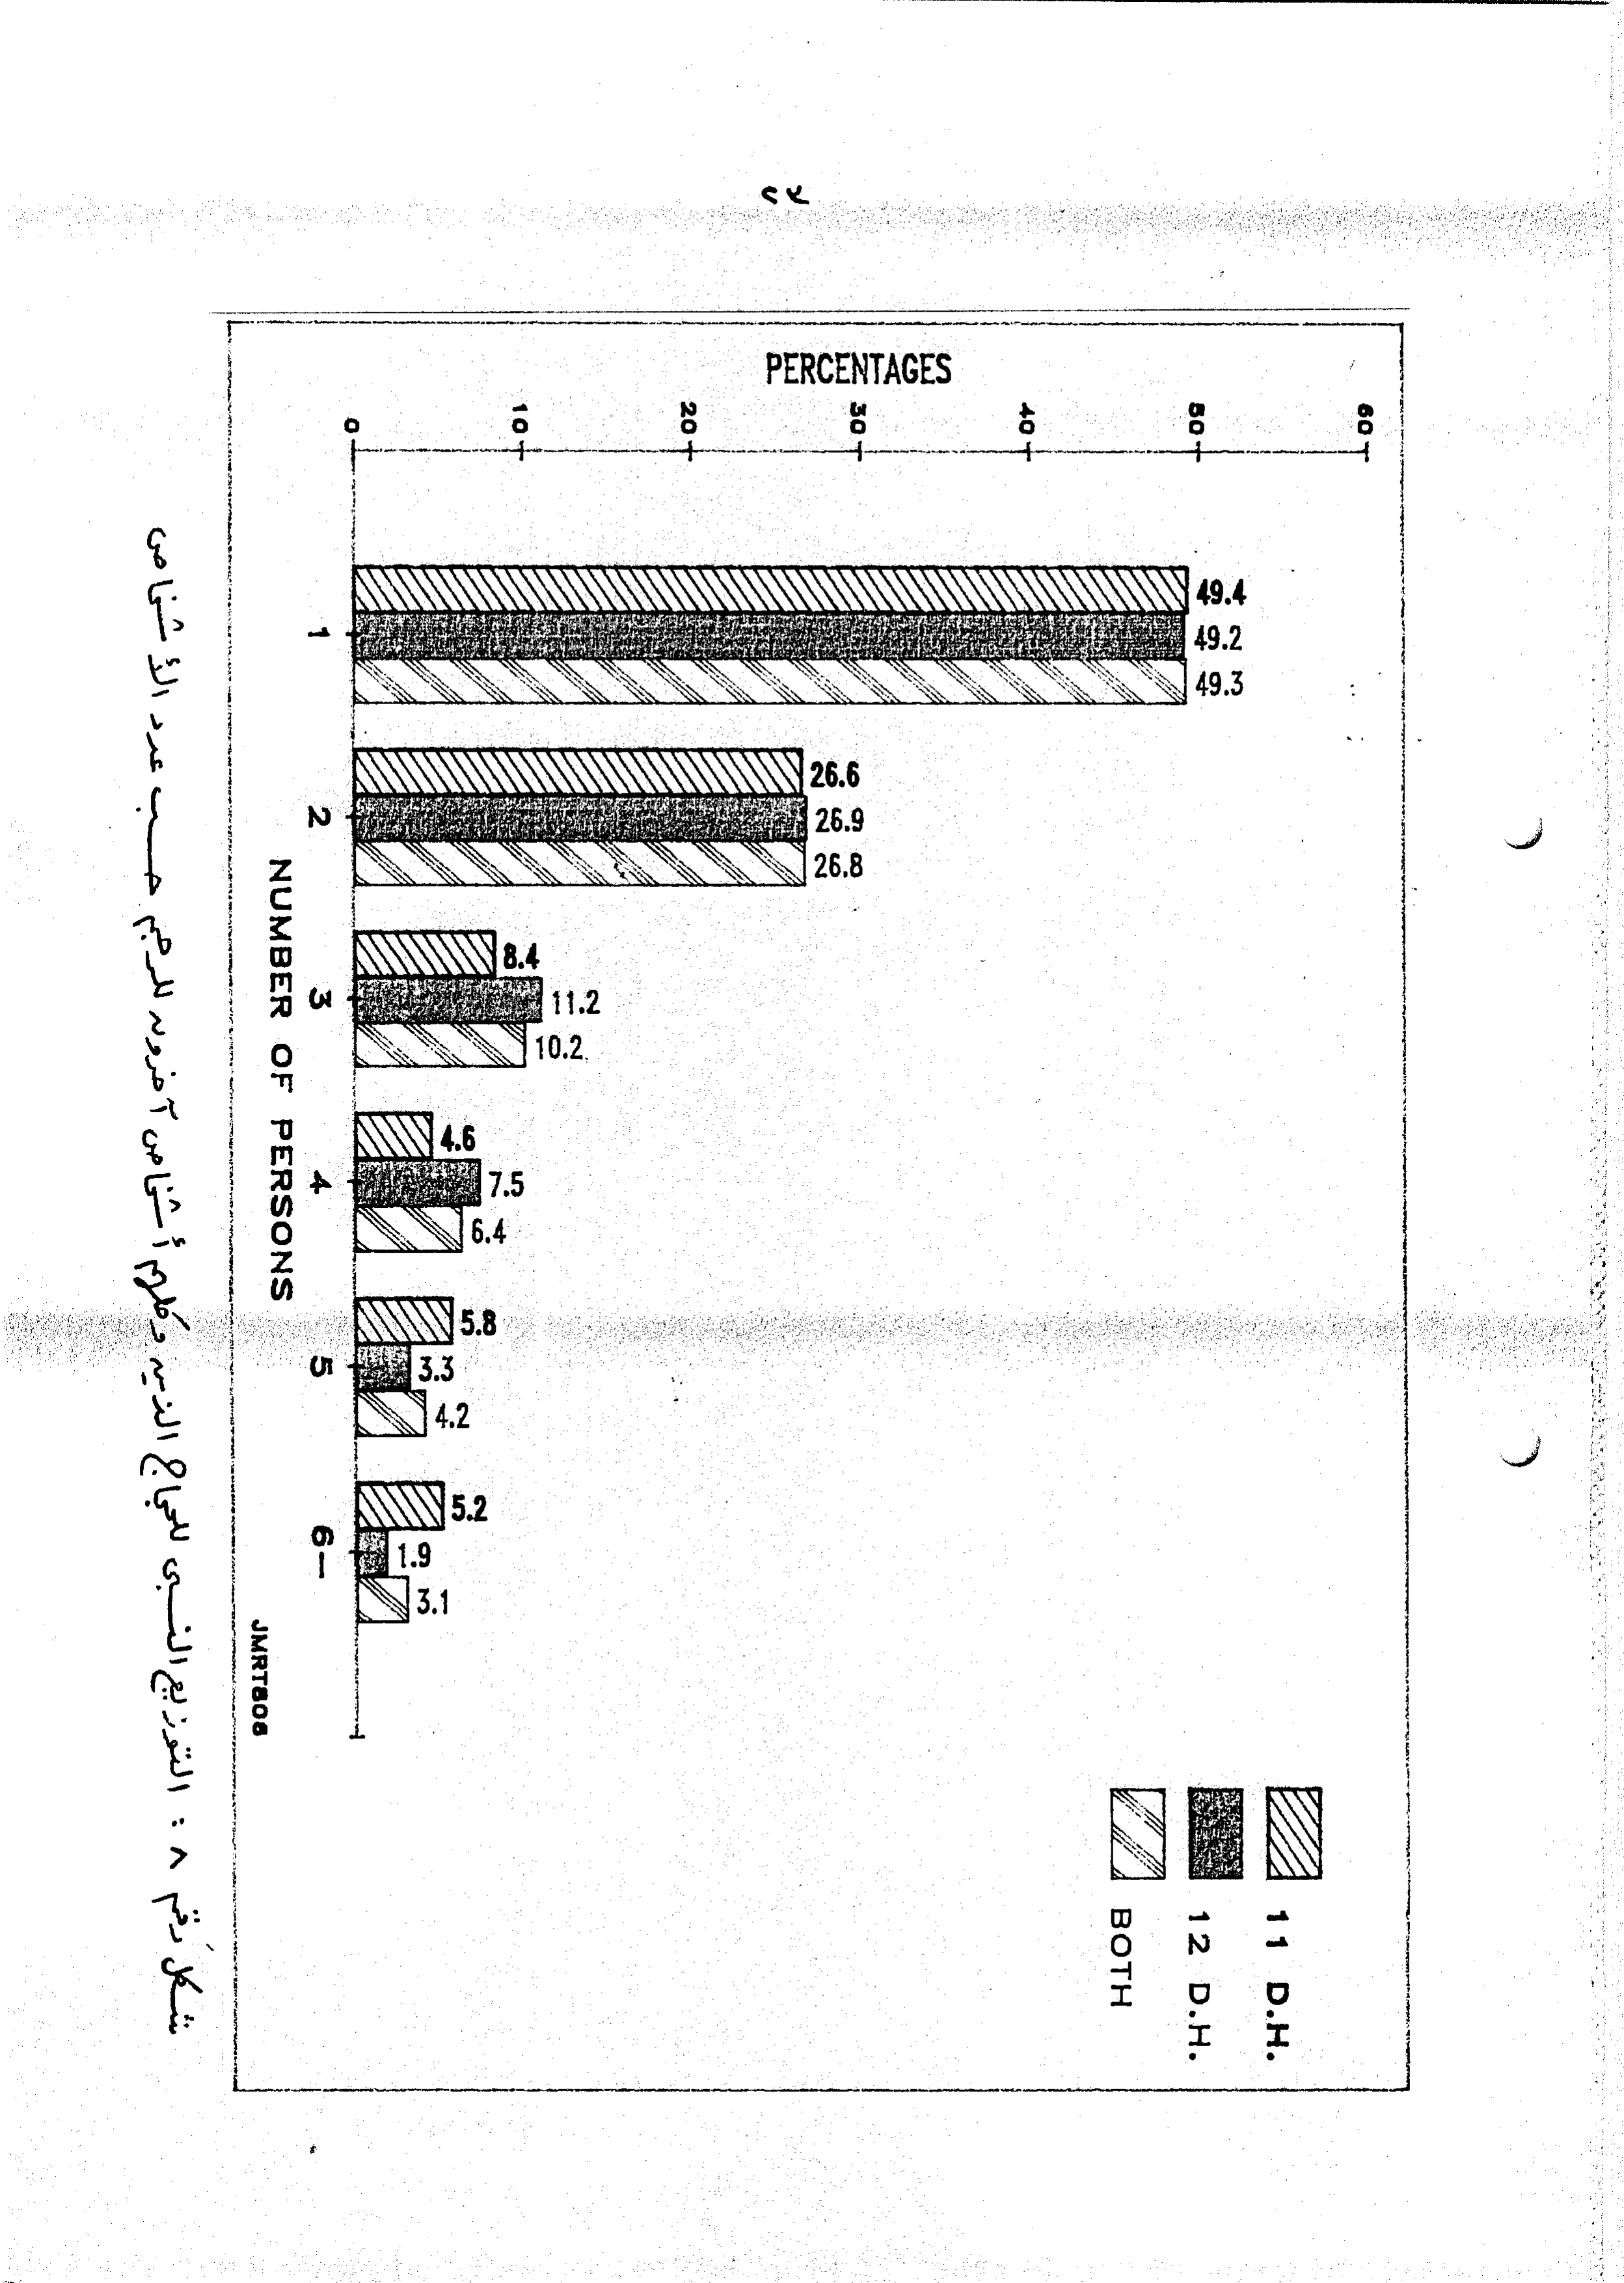 ٢٤
PERCENTAGES
60
50
40
30
20
10
0
49.4
49.2
49.3
26.6
26.9
26.8
8.4
11.2
10.2
4.6
7.5
6.4
5.8
3.3
4.2
5.2
1.9
3.1
1
2
3
4
5
6—
NUMBER OF PERSONS
JMRT808
11 D.H.
12 D.H.
BOTH
شكل رقم ٨ : التوزيع النسبى للحجاج الذين وكلهم أشخاص آخرون للرجم حسب عدد الأشخاص